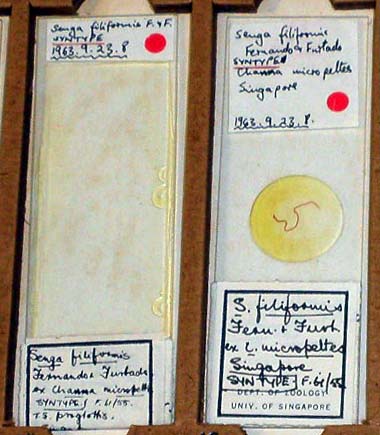 Senga filiformis F. & F.
SYNTYPE
1963.9.23.8
Senga filiformis
Fernando & Furtado
ex Channa micropeltes
SYNTYPE / F.61/55.
T.S. proglottis.
Senga filiformis
Fernando & Furtado
SYNTYPE
Channa micropeltes
Singapore
1963.9.23.8.
S. filiformis
Fern. & Furt.
ex C. micropeltes
Singapore
SYNTYPE / F.61/55
DEPT. OF ZOOLOGY
UNIV. OF SINGAPORE